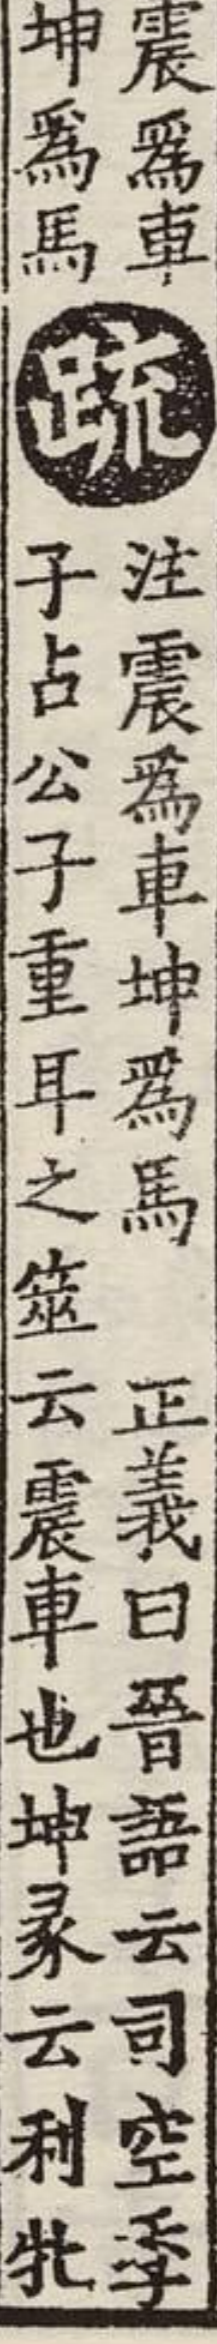 震爲車
坤爲馬
疏
注震爲車坤爲馬 正義曰晉語云司空季
子占公子重耳之筮云震車也坤彖云利牝